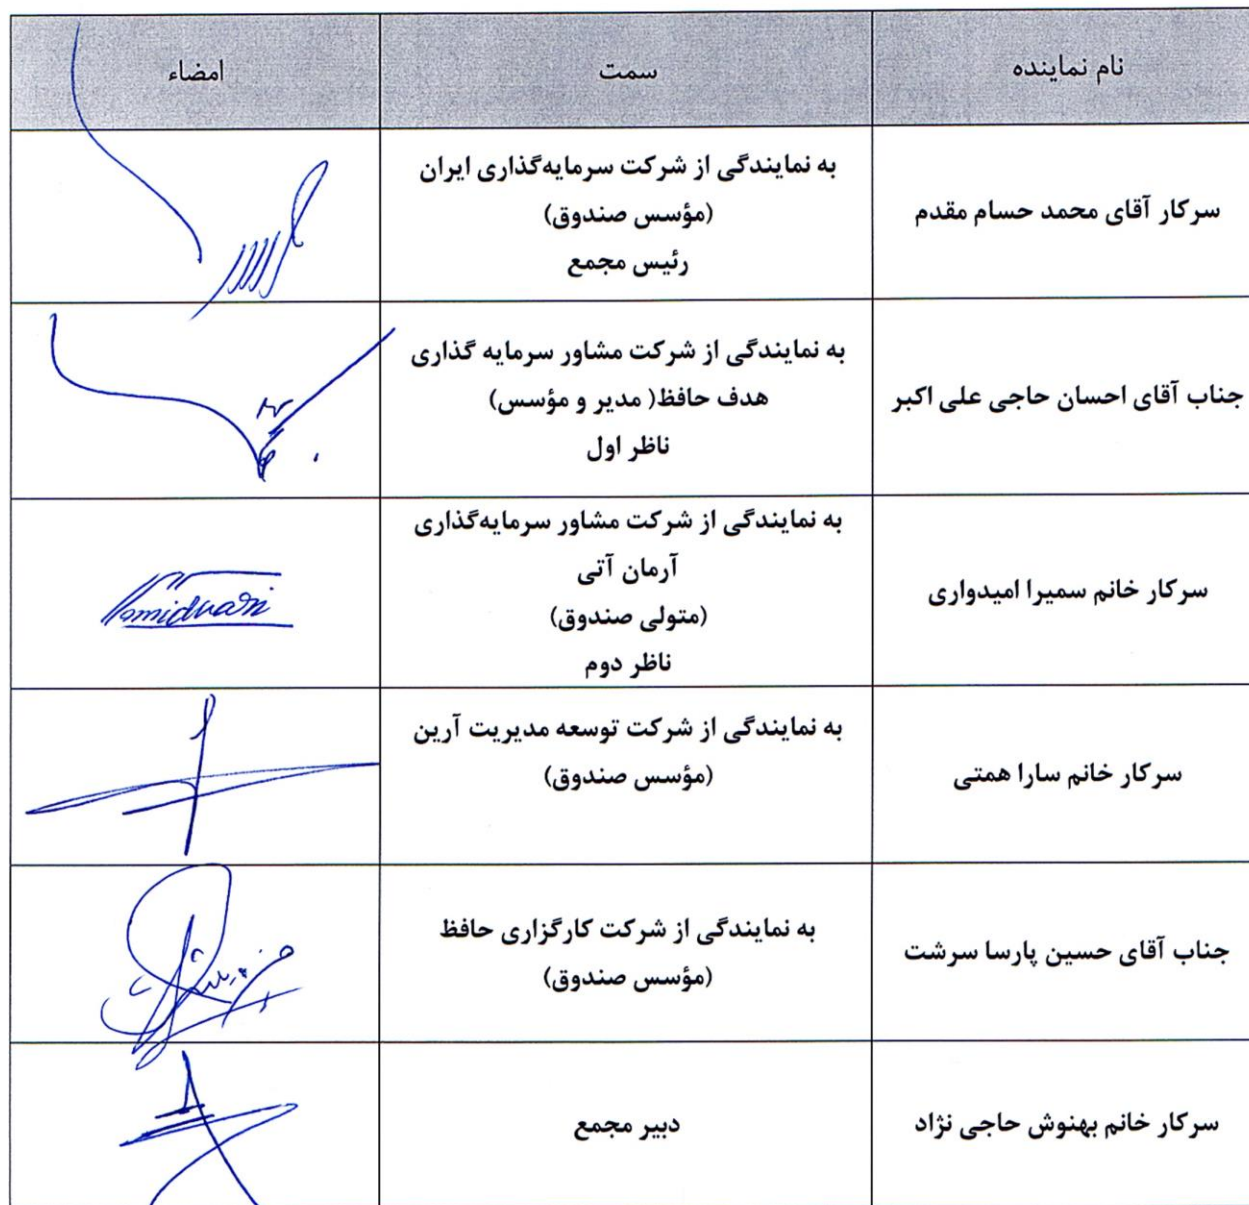 نام نماینده
سمت
امضاء
سرکار آقای محمد حسام مقدم
به نمایندگی از شرکت سرمایه‌گذاری ایران
(مؤسس صندوق)
رئیس مجمع
جناب آقای احسان حاجی علی اکبر
به نمایندگی از شرکت مشاور سرمایه گذاری
هدف حافظ( مدیر و مؤسس)
ناظر اول
سرکار خانم سمیرا امیدواری
به نمایندگی از شرکت مشاور سرمایه‌گذاری
آرمان آتی
(متولی صندوق)
ناظر دوم
Omidvari
سرکار خانم سارا همتی
به نمایندگی از شرکت توسعه مدیریت آرین
(مؤسس صندوق)
جناب آقای حسین پارسا سرشت
به نمایندگی از شرکت کارگزاری حافظ
(مؤسس صندوق)
سرکار خانم بهنوش حاجی نژاد
دبیر مجمع